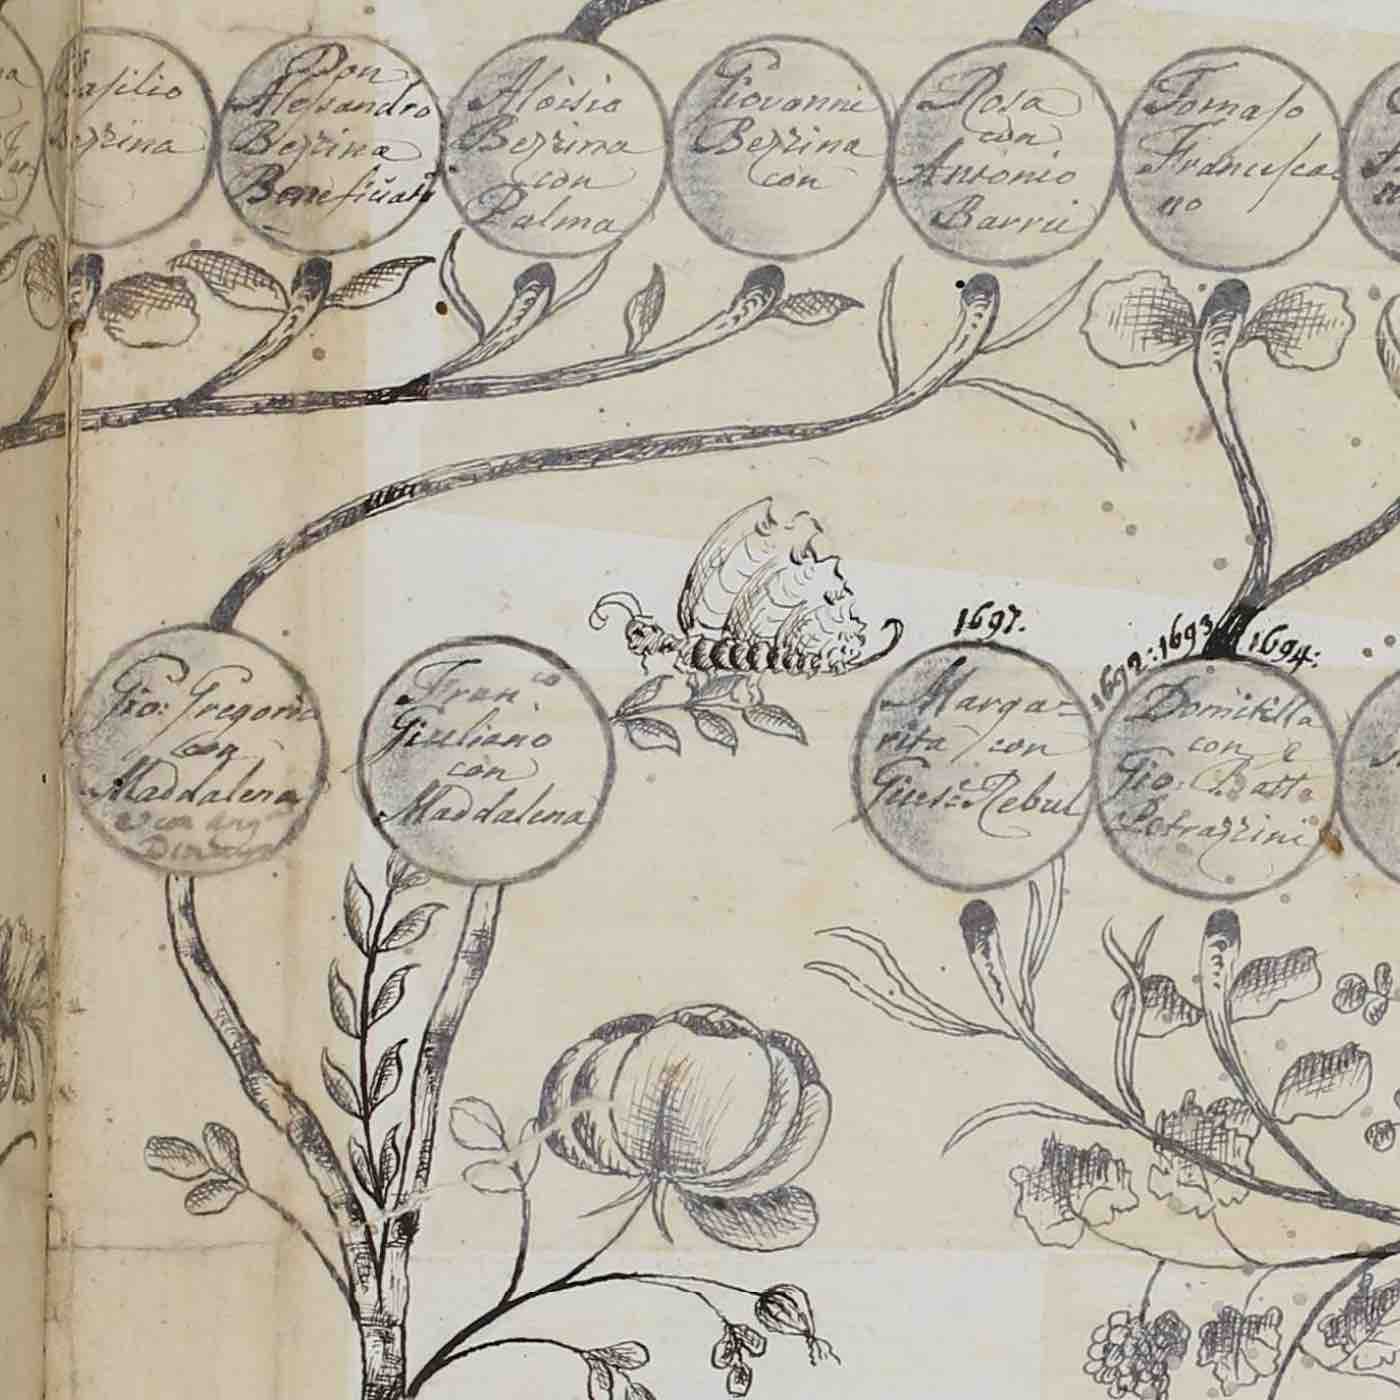 Basilio
Bezzina
Don
Alessandro
Bezzina
Beneficiato
Aloisio
Bezzina
con
Palma
Giovanni
Bezzina
con
Rosa
con
Antonio
Barrii
Tomaso
Francesca
no
1697.
1692: 1693
1694:
Gio: Gregorio
con
Maddalena
Fran.co
Giuliano
con
Maddalena
Marga=
rita con
Gius.e Rebul
Domitilla
con
Gio: Batta
Petrazzini